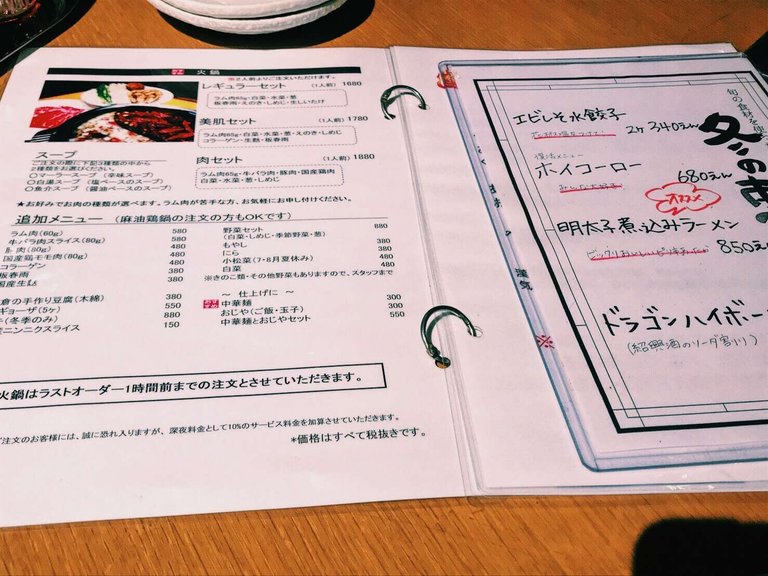 火鍋
※2人前よりご注文いただけます。
レギュラーセット (1人前) 1680
ラム肉65g・白菜・水菜・葱
板春雨・えのき・しめじ・生しいたけ
美肌セット (1人前) 1780
ラム肉65g・白菜・水菜・葱・えのき・しめじ
コラーゲン・生麩・板春雨
肉セット (1人前) 1880
ラム肉65g・牛バラ肉・豚肉・国産鶏肉
白菜・水菜・葱・しめじ
スープ
ご注文の際に下記3種類の中から
2種類をお選びください。
〇マーラースープ (辛味スープ)
〇白湯スープ (塩ベースのスープ)
〇魚介スープ (醤油ベースのスープ)
★お好みでお肉の種類が選べます。ラム肉が苦手な方、お気軽にお申し付けください。
追加メニュー (麻油鶏鍋の注文の方もOKです)
ラム肉(60g) 580
牛バラ肉スライス(80g) 580
肉(80g) 480
国産鶏モモ肉(80g) 480
コラーゲン 480
板春雨 380
国産生 380
倉の手作り豆腐(木綿) 380
ギョーザ(5ヶ) 550
(冬季のみ) 880
ニンニクスライス 150
野菜セット 880
(白菜・しめじ・季節野菜・葱)
もやし 380
にら 480
小松菜(7・8月夏休み) 480
白菜 480
※きのこ類・その他野菜もありますので、スタッフまで
～ 仕上げに ～
中華麺 300
おじや(ご飯・玉子) 300
中華麺とおじやセット 550
火鍋はラストオーダー1時間前までの注文とさせていただきます。
ご注文のお客様には、誠に恐れ入りますが、深夜料金として10%のサービス料金を加算させていただきます。
*価格はすべて税抜きです。
旬の食材を使
冬の
エビしそ水餃子
2ヶ 340えん
復活メニュー
ホイコーロー
みんな大好き
680えん
オススメ
明太子煮込みラーメン
850えん
漢気
※
ドラゴンハイボー
(紹興酒のソーダ割り)